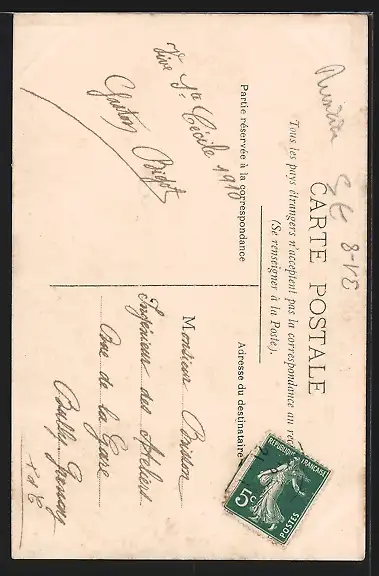 CARTE POSTALE
Tous les pays étrangers n'acceptent pas la correspondance au rec
(Se renseigner à la Poste).
Partie réservée à la correspondance
Adresse du destinataire
Vive Ste Cécile 1910
Gaston Bigot
Monsieur Brisson
Ingénieur des Ateliers
Rue de la Gare
Bully Grenay
P d C
REPUBLIQUE FRANÇAISE
5c
POSTES
8-VE